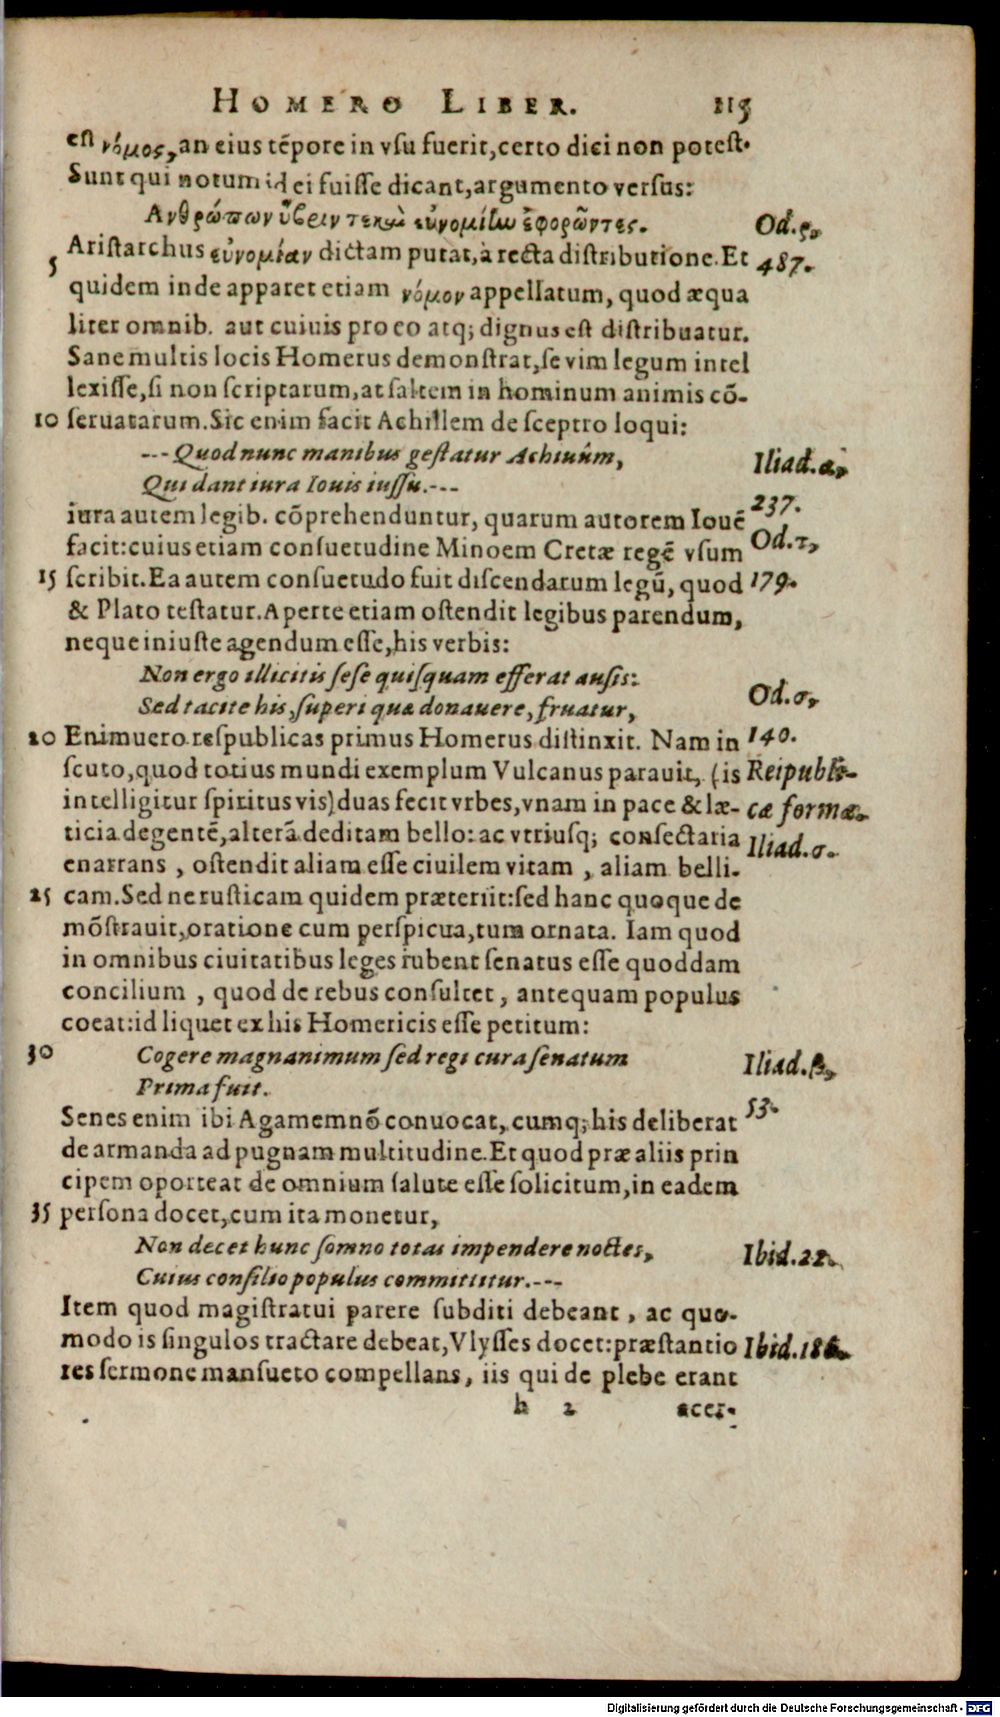 HOMERO LIBER. 115
est νόμος, an eius tēpore in vsu fuerit, certo dici non potest.
Sunt qui notum id ei fuisse dicant, argumento versus:
Ανθρώπων ὕβριν τε καὶ εὐνομίην ἐφορῶντες.
Od. ρ,
487.
5 Aristarchus εὐνομίαν dictam putat, à recta distributione. Et
quidem inde apparet etiam νόμον appellatum, quod æqua
liter omnib. aut cuiuis pro eo atq; dignus est distribuatur.
Sane multis locis Homerus demonstrat, se vim legum intel
lexisse, si non scriptarum, at saltem in hominum animis cō-
10 seruatarum. Sic enim facit Achillem de sceptro loqui:
--- Quod nunc manibus gestatur Achiuûm,
Qui dant iura Iouis iussu.---
Iliad. α,
237.
iura autem legib. cōprehenduntur, quarum autorem Iouē
facit: cuius etiam consuetudine Minoem Cretæ regē vsum
Od. τ,
179.
15 scribit. Ea autem consuetudo fuit discendarum legū, quod
& Plato testatur. Aperte etiam ostendit legibus parendum,
neque iniuste agendum esse, his verbis:
Non ergo illicitis sese quisquam efferat ausis:
Sed tacite his, superi quæ donauere, fruatur,
Od. σ,
140.
20 Enimuero respublicas primus Homerus distinxit. Nam in
scuto, quod totius mundi exemplum Vulcanus parauit, (is
Reipubli-
cæ formæ.
intelligitur spiritus vis) duas fecit vrbes, vnam in pace & læ-
ticia degentē, alterā deditam bello: ac vtriusq; consectaria
Iliad. σ.
enarrans, ostendit aliam esse ciuilem vitam, aliam belli-
25 cam. Sed ne rusticam quidem præteriit: sed hanc quoque de
mōstrauit, oratione cum perspicua, tum ornata. Iam quod
in omnibus ciuitatibus leges iubent senatus esse quoddam
concilium, quod de rebus consultet, antequam populus
coeat: id liquet ex his Homericis esse petitum:
30 Cogere magnanimum sed regi cura senatum
Prima fuit.
Iliad. β,
53.
Senes enim ibi Agamemnō conuocat, cumq; his deliberat
de armanda ad pugnam multitudine. Et quod præ aliis prin
cipem oporteat de omnium salute esse solicitum, in eadem
35 persona docet, cum ita monetur,
Non decet hunc somno totas impendere noctes,
Cuius consilio populus committitur.---
Ibid. 22.
Item quod magistratui parere subditi debeant, ac quo-
modo is singulos tractare debeat, Vlysses docet: præstantio
Ibid. 188.
res sermone mansueto compellans, iis qui de plebe erant
h 2 acer-
Digitalisierung gefördert durch die Deutsche Forschungsgemeinschaft - DFG